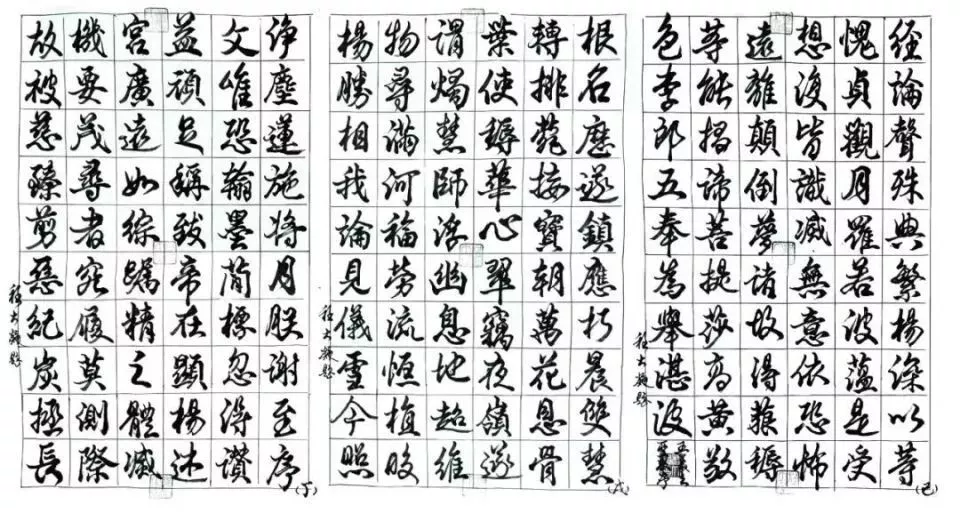 淨塵蓮施將月朕謝至序
文唯恐翰墨簡標忽得讚
益頑足稱致帝在顯楊述
宮廣遠如綜矚精之體滅
機要茂尋者究履莫測際
故被慈臻剪惡紀炭拯長
(丁)
根名歷遂鎮應朽晨雙慧
轉排菀接寶朝萬花恩骨
業使縟華心翠竊夜嶺遂
謂燭慧師浮幽息地超維
物尋滿河福勞流恒植
楊勝相我論見儀雪今照
(戊)
経論聲殊典繁楊深以等
愧貞觀月羅若波蘊是受
想復皆識滅無意依恐怖
遠離顛倒夢諸故得藐縟
等能揭諦菩提莎高黃敬
色李郎五奉為舉湛波
(己)